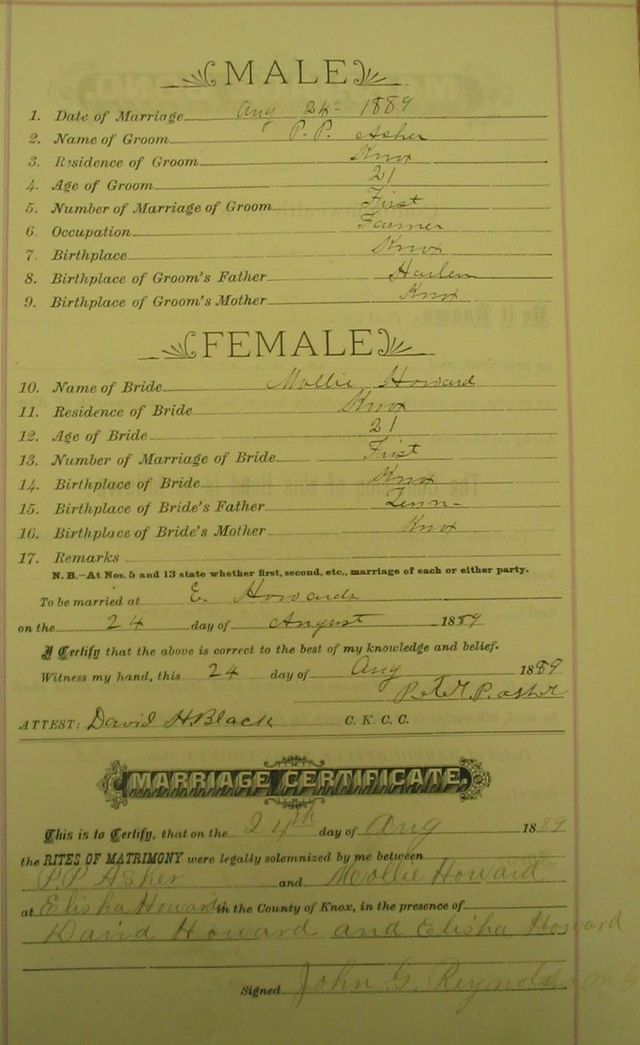 MALE
1. Date of Marriage Aug 24th 1889
2. Name of Groom P. P. Asher
3. Residence of Groom Knox
4. Age of Groom 21
5. Number of Marriage of Groom First
6. Occupation Farmer
7. Birthplace Knox
8. Birthplace of Groom's Father Harlen
9. Birthplace of Groom's Mother Knox
FEMALE
10. Name of Bride Mollie Howard
11. Residence of Bride Knox
12. Age of Bride 21
13. Number of Marriage of Bride First
14. Birthplace of Bride Knox
15. Birthplace of Bride's Father Tenn
16. Birthplace of Bride's Mother Knox
17. Remarks
N.B.—At Nos. 5 and 13 state whether first, second, etc., marriage of each or either party.
To be married at E. Howards
on the 24 day of August 1889
I Certify that the above is correct to the best of my knowledge and belief.
Witness my hand, this 24 day of Aug 1889
P. Asher
ATTEST: David H. Black C. K. C. C.
MARRIAGE CERTIFICATE.
This is to Certify, that on the 24th day of Aug 1889
the RITES OF MATRIMONY were legally solemnized by me between
P P Asher and Mollie Howard
at Elisha Howards in the County of Knox, in the presence of
David Howard and Elisha Howard
Signed John G. Reynolds